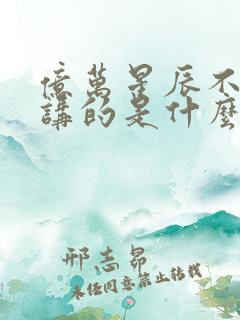 億萬星辰不
講的是什麼
邢志昂
未經同意禁止轉載